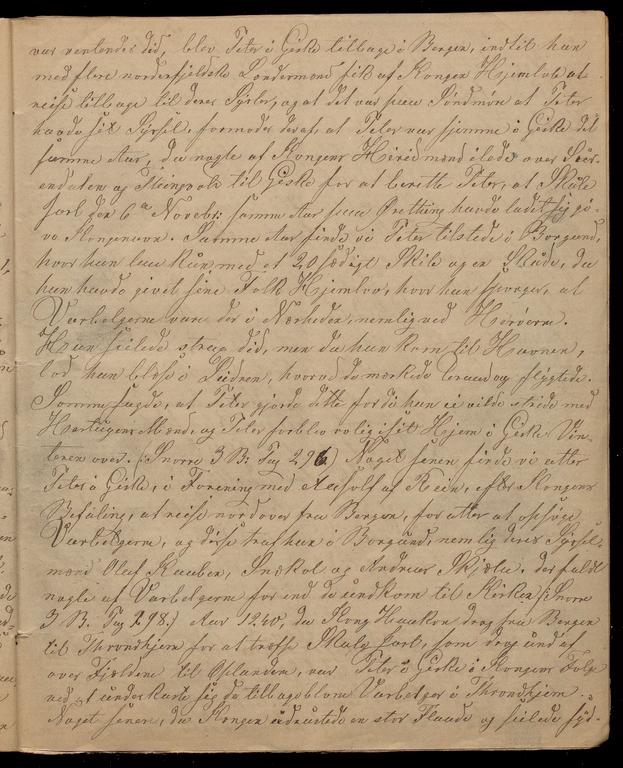 var ventendes did, blev Peter i Giske tilbage i Bergen, indtil han
med flere nordenfjeldske Lendermænd fik af Kongen Hjemlov at
reise tilbage til deres Sysler, og at det var paa Söndmöre at Peter
havde sit Syssel, formodes deraf, at Peter var hjemme i Giske det
samme Aar, da nogle af Kongens Hirdmænd ilede over
og til Giske for at berette Peter, at Skule
Jarl den 6te Novebr: samme Aar paa Örething havde ladet sig gi-
ve Kongenavn. Samme Aar finde vi Peter tilstede i Borgund,
hvor han laa kun med et 20 sædigt Skib og en Skude, da
han havde givet sine Folk Hjemlov, hvor han spörger, at
Varbelgerne vare der i Nærheden, nemlig ved Heröerne.
Han seilede strax did, men da han kom til Havnen,
lod han blæse i Luden, hvorved de mærkede ham og flygtede.
Somme sagde, at Peter gjorde dette fordi han ei vilde stride med
Hertugens Mænd, og Peter forblev rolig i sit Hjem i Giske Vin-
teren over. (: Snorre 3 B: Pag 296.) Noget senere finde vi atter
Peter i Giske, i Forening med af Rein, efter Kongens
Befaling, at reise nordover fra Bergen, for atter at opsöge
Varbelgerne, og disse traf han i Borgund, nemlig deres Syssel-
mænd Olaf Snækol og Andreas Der faldt
nogle af Varbelgerne for end de undkom til Kirken (: Snorre
3 B. Pag 298.) Aar 1240, da Kong Haakon drog fra Bergen
til Throndhjem for at træffe Jarl, som drog undaf
over Fjeldene til Oplandene, var Peter i Giske i Kongens Fölge
ved at underkaste sig de tilbageblevne Varbelger i Throndhjem.
Noget senere, da Kongen udrustede en stor Flaade og seilede syd-